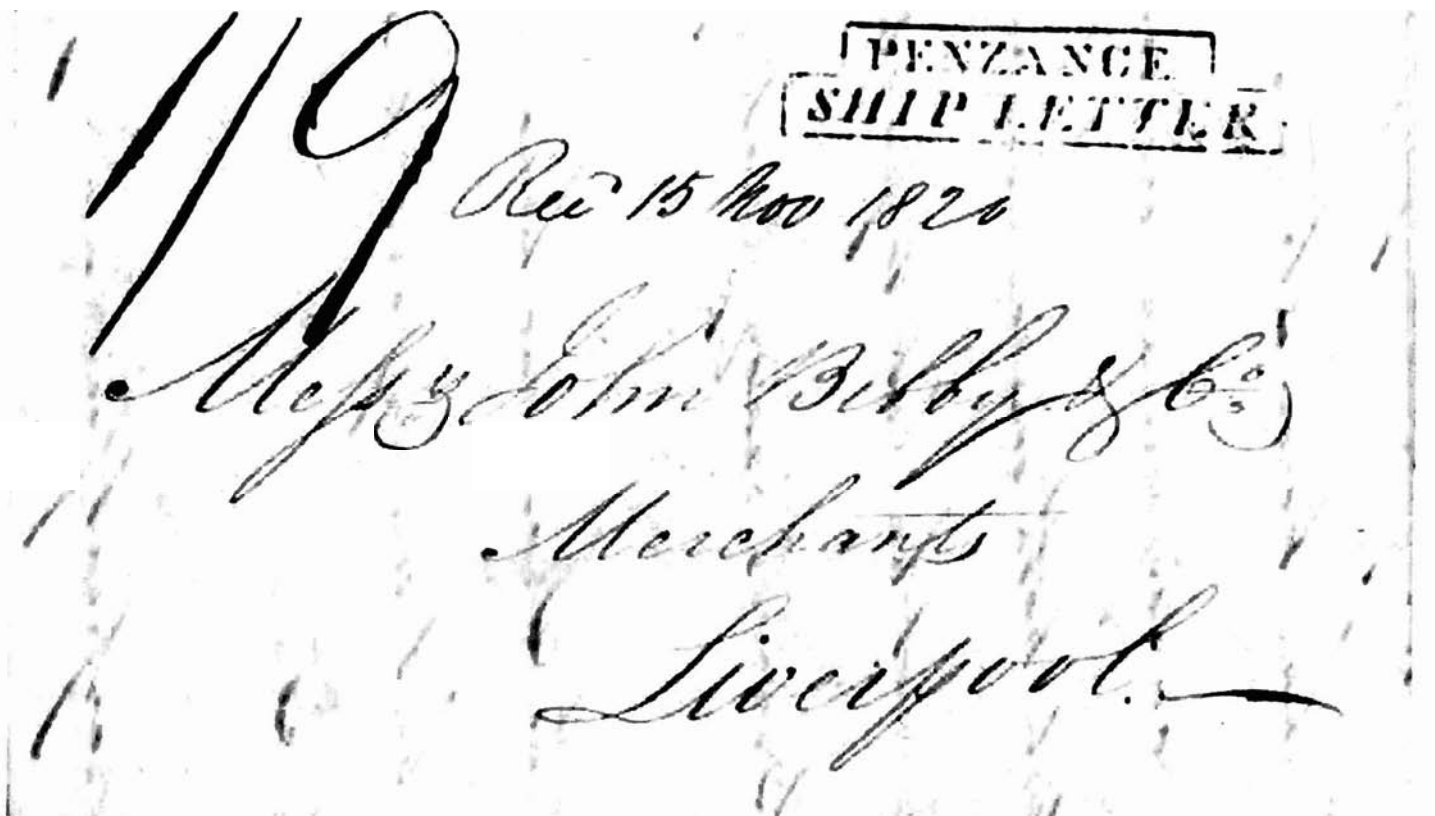 1/9
PENZANCE
SHIP LETTER
Rec 15 Nov 1820
Messrs John Bibby & Co
Merchants
Liverpool.